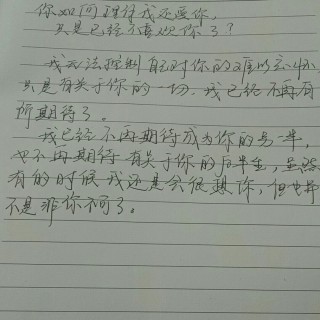 你如何理解我还爱你,
只是已经不喜欢你了?
我无法控制自己对你的难以忘怀
只是有关于你的一切,我已经不再有
所期待了。
我已经不再期待成为你的另一半,
也不再期待有关于你的后半生,虽然
有的时候我还是会很想你,但也并
不是非你不可了。